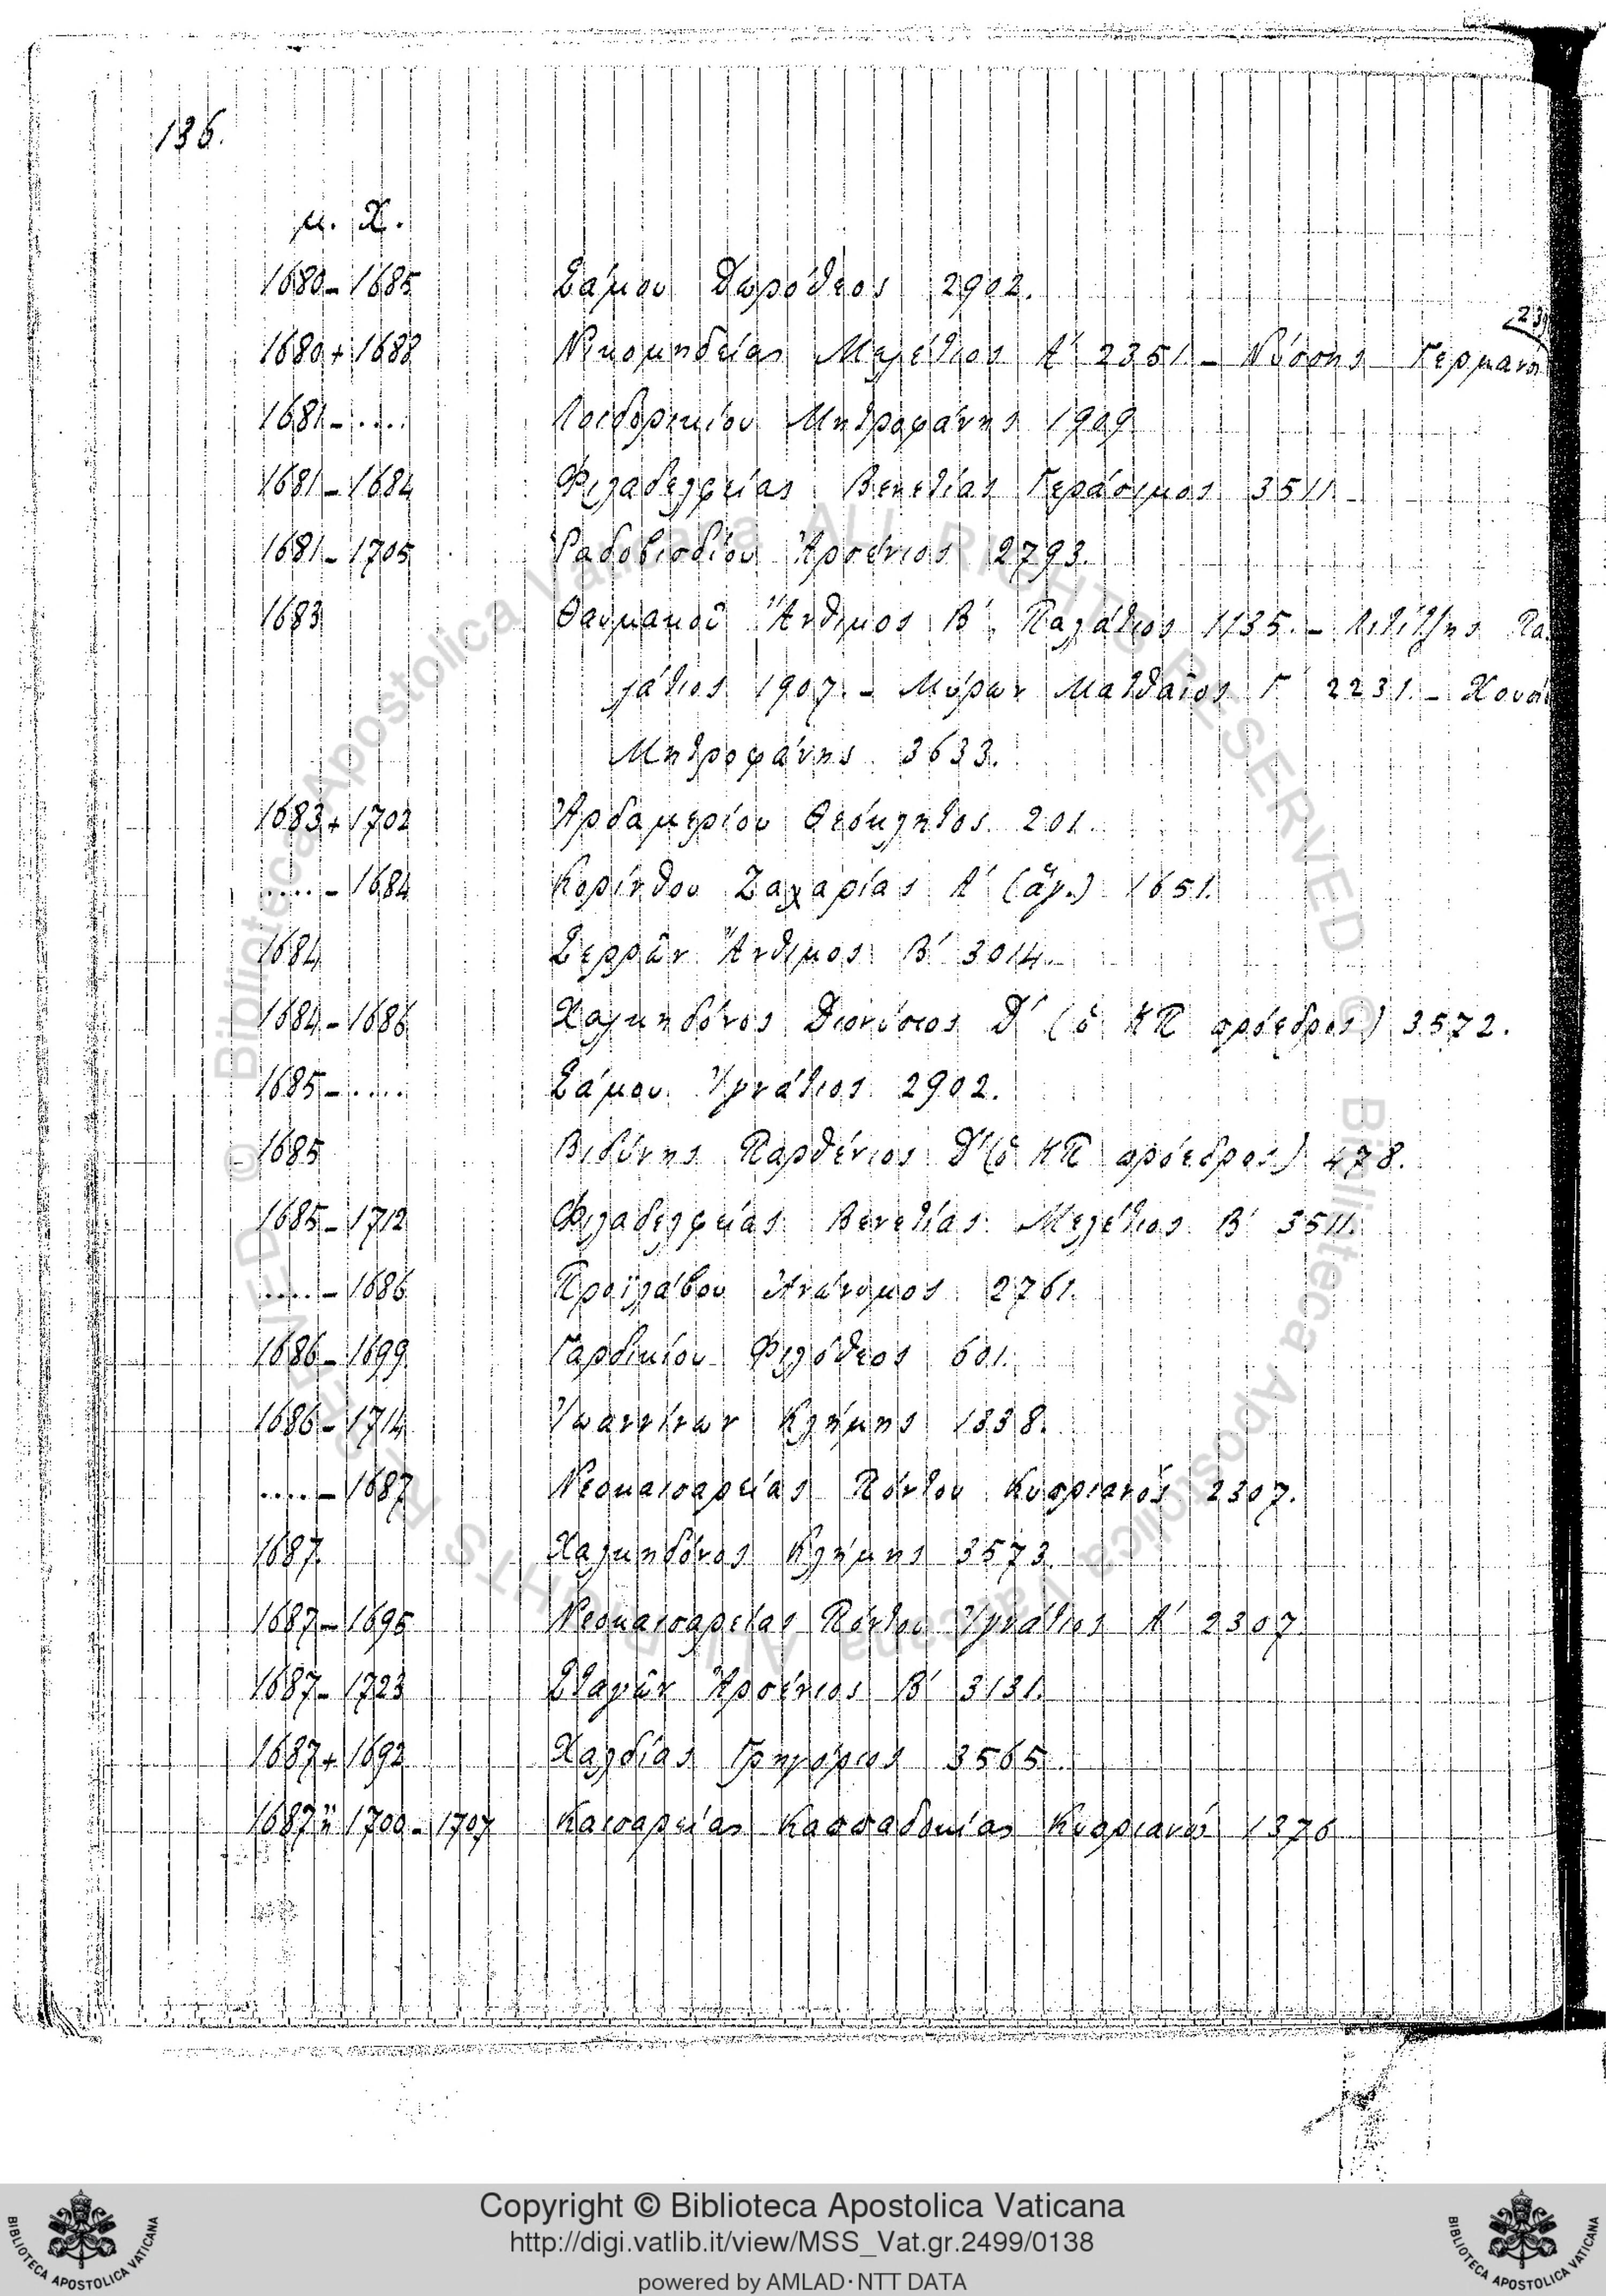 136.
μ. Χ.
1680-1685 Σάμου Δωρόθεος 2902.
1680+1688 Νικομηδείας Μελέτιος Α΄ 2351.- Νύσσης Γερμανὸ
1681-.... Λοιδορικίου Μητροφάνης 1909
1681-1684 Φιλαδελφείας Βενετίας Γεράσιμος 3511.
1681-1705 Ῥαδοβισδίου Ἀρσένιος 2793.
1683 Θαυμακοῦ Ἄνθιμος Β΄, Παλάτιος 1135.- Λιτίτζης Πα
λάτιος 1907.- Μύρων Ματθαῖος Γ΄ 2231.-
Μητροφάνης 3633.
1683+1702 Ἀρδαμερίου Θεόκλητος 201.
....-1684 Κορίνθου Ζαχαρίας Α΄ (ἅγ.) 1651.
1684 Σερρῶν Ἄνθιμος Β΄ 3014.
1684-1686 Χαλκηδόνος Διονύσιος Δ΄ (ὁ ΚΠ πρόεδρος) 3572.
1685-.... Σάμου Ἰγνάτιος 2902.
1685 Βιδύνης Παρθένιος Δ΄ (ὁ ΚΠ πρόεδρος) 478.
1685-1712 Φιλαδελφείας Βενετίας Μελέτιος Β΄ 3511.
....-1686 Προϊλάβου Ἀνώνυμος 2761.
1686-1699 Γαρδικίου Φιλόθεος 601.
1686-1714 Ἰωαννίνων Κλήμης 1338.
....-1687 Νεοκαισαρείας Πόντου Κυπριανὸς 2307.
1687 Χαλκηδόνος Κλήμης 3573.
1687-1695 Νεοκαισαρείας Πόντου Ἰγνάτιος Α΄ 2307
1687-1723 Σταγῶν Ἀρσένιος Β΄ 3131.
1687+1692 Χαλδίας Γρηγόριος 3565.
1687 ἢ 1700-1707 Καισαρείας Καππαδοκίας Κυπριανὸς 1376
Copyright © Biblioteca Apostolica Vaticana
http://digi.vatlib.it/view/MSS_Vat.gr.2499/0138
powered by AMLAD·NTT DATA